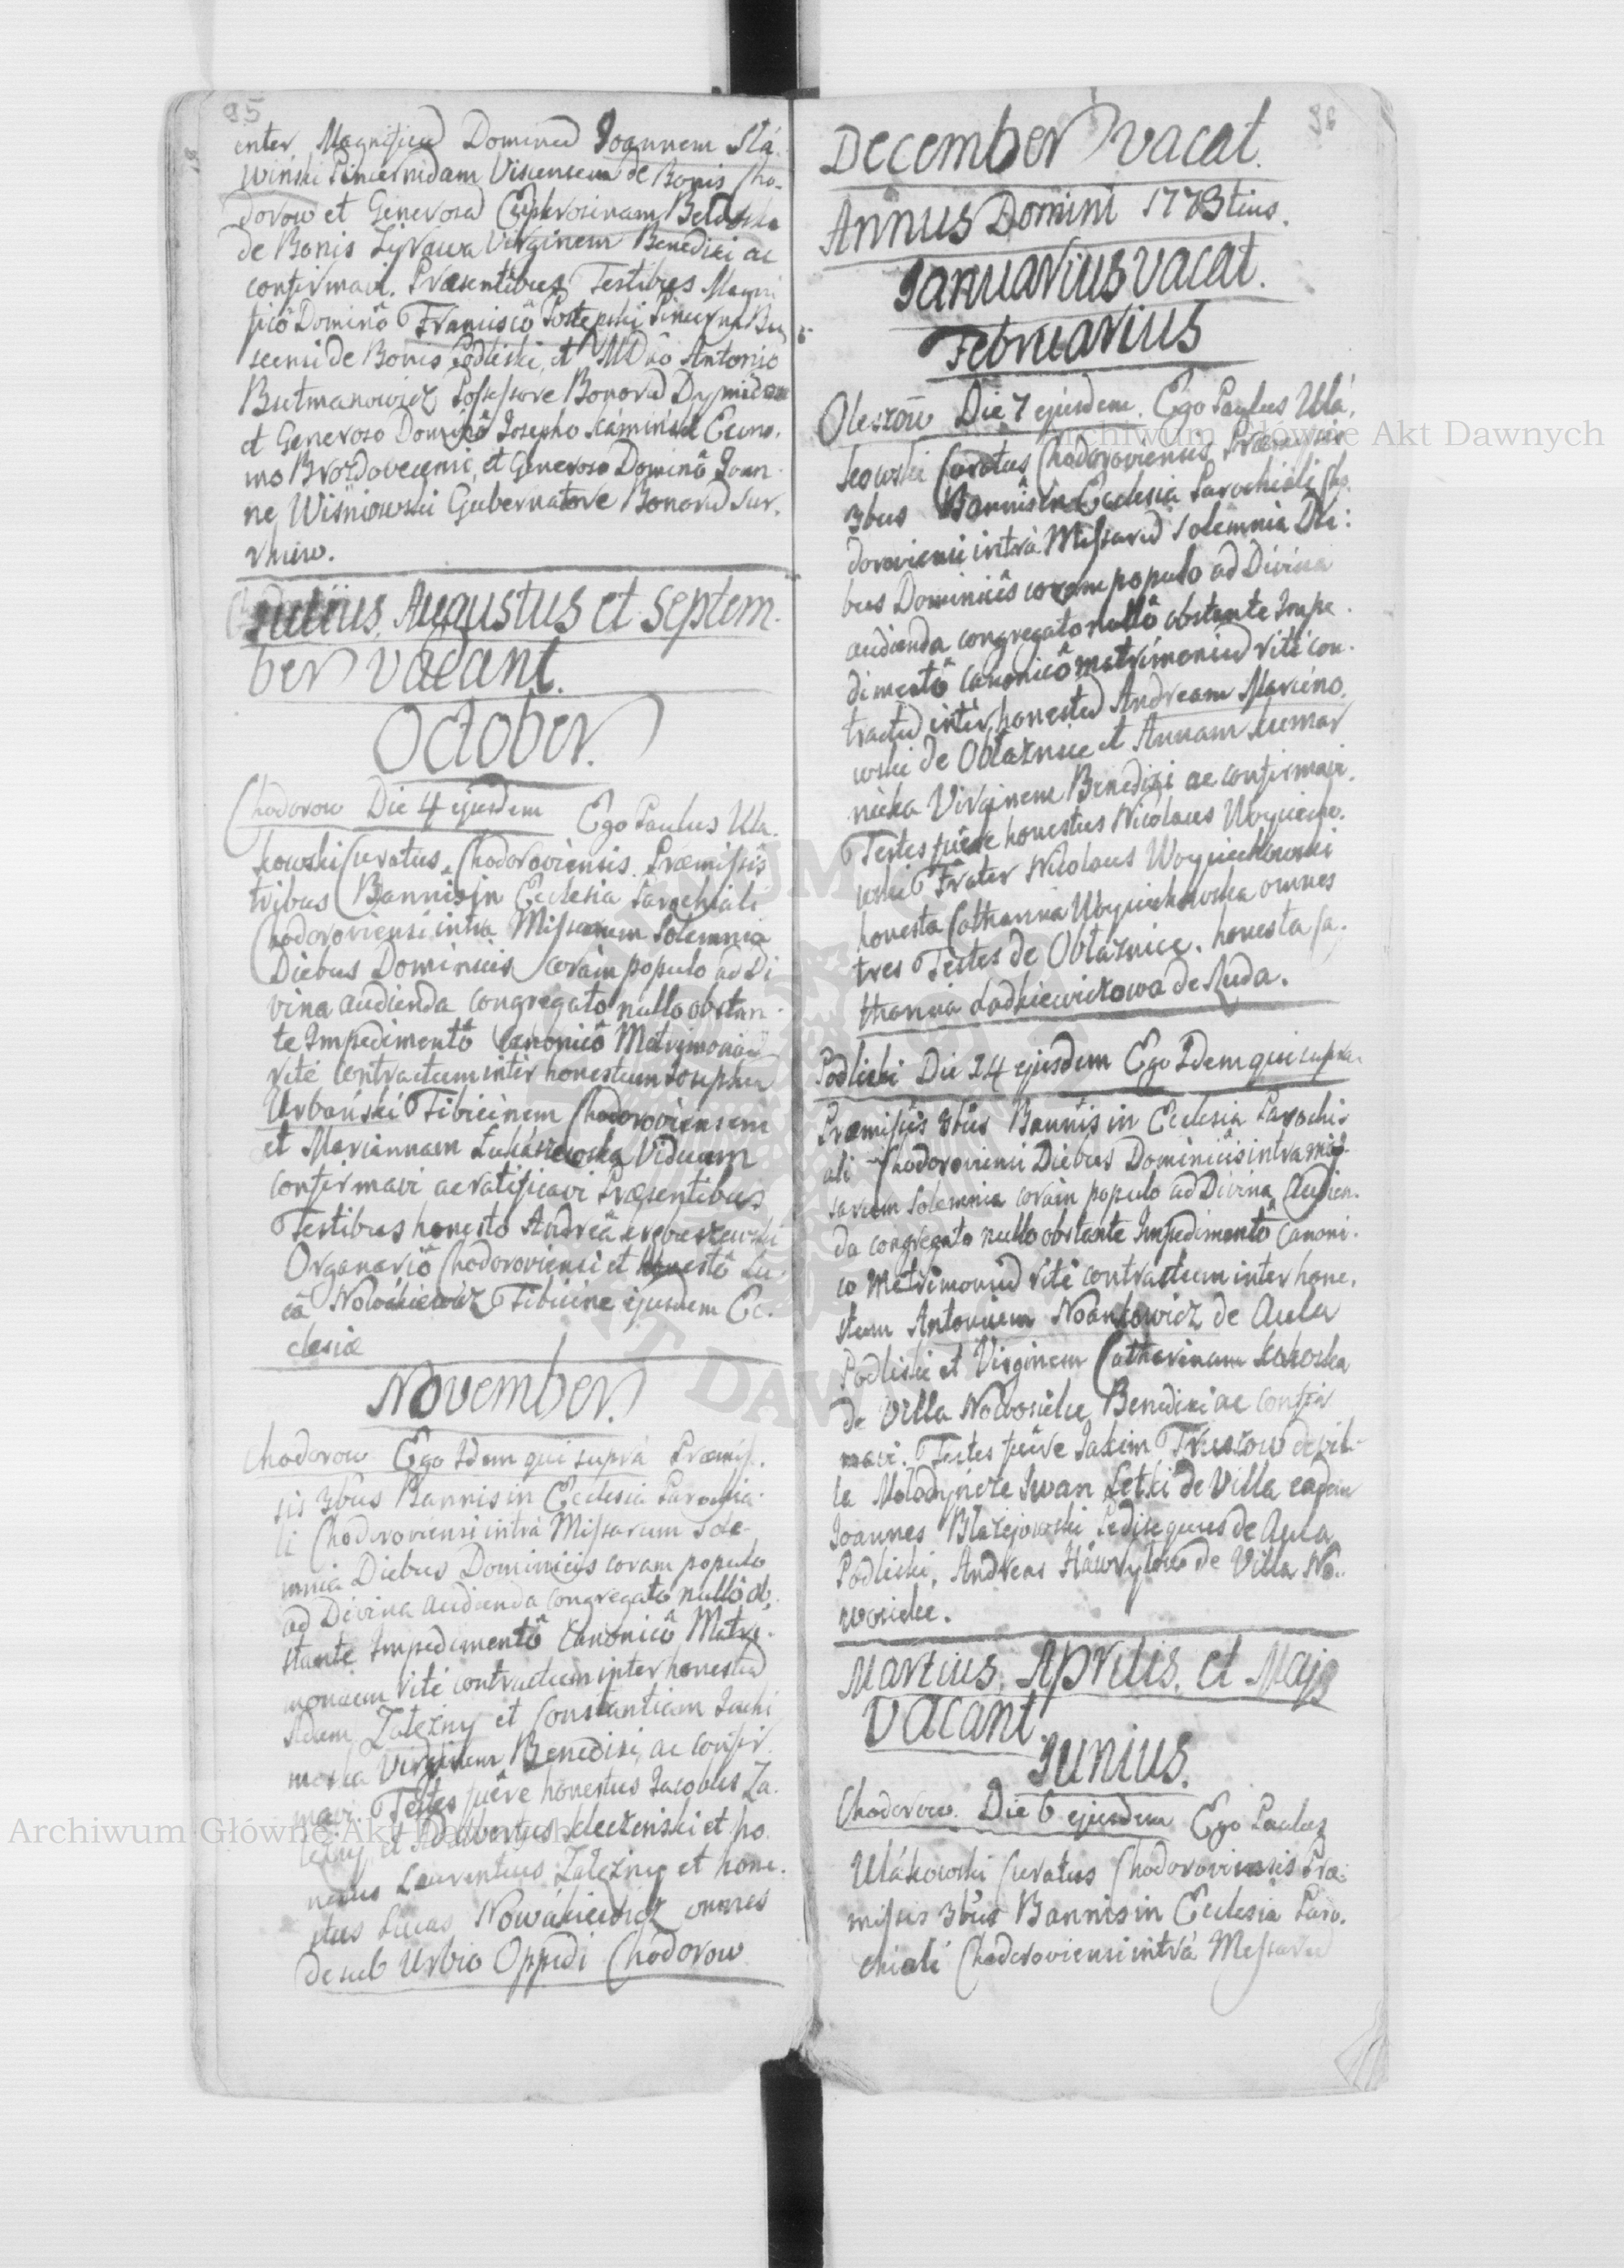 95
inter Magnificū Dominū Joannem Stá-
wiński Pincernidam Viscensem de Bonis Cho-
dorow et Generosā Euphrosinam
de Bonis Virginem Benedixi ac
confirmavi. Præsentibus Testibus Magni
ficô Dominô Francisco Pincerna Bu
scensi de Bonis Podliski, et MDno Antonio
Butmanowicz Possessore Bonorū
et Generoso Dominô Josepho Econo-
mo et Generoso Dominô Joan-
ne Wiśniowski Gubernatore Bonorū
Julius, Augustus et Septem-
ber vacant.
October.
Chodorow Die 4 ejusdem Ego Paulus Ula-
kowski Curatus Chodoroviensis Præmissis
tribus Bannis in Ecclesia Parochiali
Chodoroviensi intra Missarum Solemnia
Diebus Dominicis coram populo ad Di
vina audienda congregato nullo obstan-
te Impedimentô Canonicô Matrimoniū
rité contractum inter honestum Josephū
Urbański Tibicinem Chodoroviensem
et Mariannam Viduam
confirmavi ac ratificavi Præsentibus
Testibus honesto Andreâ
Organariô Chodoroviensi et honestô Lu-
câ Nowákiewicz Tibicine ejusdem Ec-
clesiæ
November.
Chodorow Ego Idem qui suprà Præmis-
sis 3bus Bannis in Ecclesia Parochia-
li Chodoroviensi intrà Missarum Sole-
mnia Diebus Dominicis coram populo
ad Divina audienda congregato nullô ob-
stante Impedimentô Canonicô Matri-
monium rité contractum inter honestū
Adam Zależny et Constantiam
Virginem Benedixi, ac Confir
mavi. Testes fuêre honestus Jacobus Za-
leżny et Adalbertus et ho
nestus Laurentius Zależny et hone-
stus Lucas Nowákiewicz omnes
de sub Urbio Oppidi Chodorow
96
December vacat.
Annus Domini 1773tius.
Januarius vacat.
Februarius
Die 7 ejusdem. Ego Paulus Ulá-
kowski Curatus Chodoroviensis Præmissis
3bus Bannis in Ecclesia Parochiali Cho-
doroviensi intrà Missarū Solemnia Die:
bus Dominicis coram populo ad Divina
audienda congregato nullô obstante Impe-
dimentô Canonicô matrimoniū rité con-
tractū inter honestū Andream Marcino-
wski de Obłaźnice et Annam
Virginem Benedixi ac confirmavi.
Testes fuêre honestus Nicolaus Woyciecho-
wski Frater Nicolaus Woyciechowski
honesta Catharina Woyciechowska omnes
tres Testes de Obłaźnice. honesta Ca-
tharina Ladkiewiczowa de Ruda.
Podliski Die 24 ejusdem Ego Idem qui supra
Præmissis 3bus Bannis in Ecclesia Parochi-
ali Chodoroviensi Diebus Dominicis intra mis-
sarum Solemnia coram populo ad Divina Audien-
da congregato nullo obstante Impedimentô Canoni-
co Matrimoniū rité contractum inter hone-
stum Antonium Noankowicz de Aula
Podliski et Virginem Catharinam
de Villa Nowosielce Benedixi ac Confir
mavi. Testes fuêre Jakim de vil-
la Molodyńcze Iwan de Villa eadem
Joannes Błażejowski Pedisequus de Aula
Podliski, Andreas Hawrylow de Villa No-
wosielce.
Martius, Aprilis, et Majg
vacant.
Junius.
Chodorow. Die 6 ejusdem Ego Paulus
Ulákowski Curatus Chodoroviensis Præ-
missis 3bus Bannis in Ecclesia Paro-
chiali Chodoroviensi intrà Missarū
Archiwum Główne Akt Dawnych
Archiwum Główne Akt Dawnych